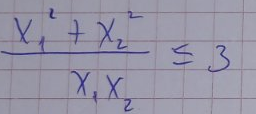 $\frac{x_1^2 + x_2^2}{x_1 x_2} \leq 3$